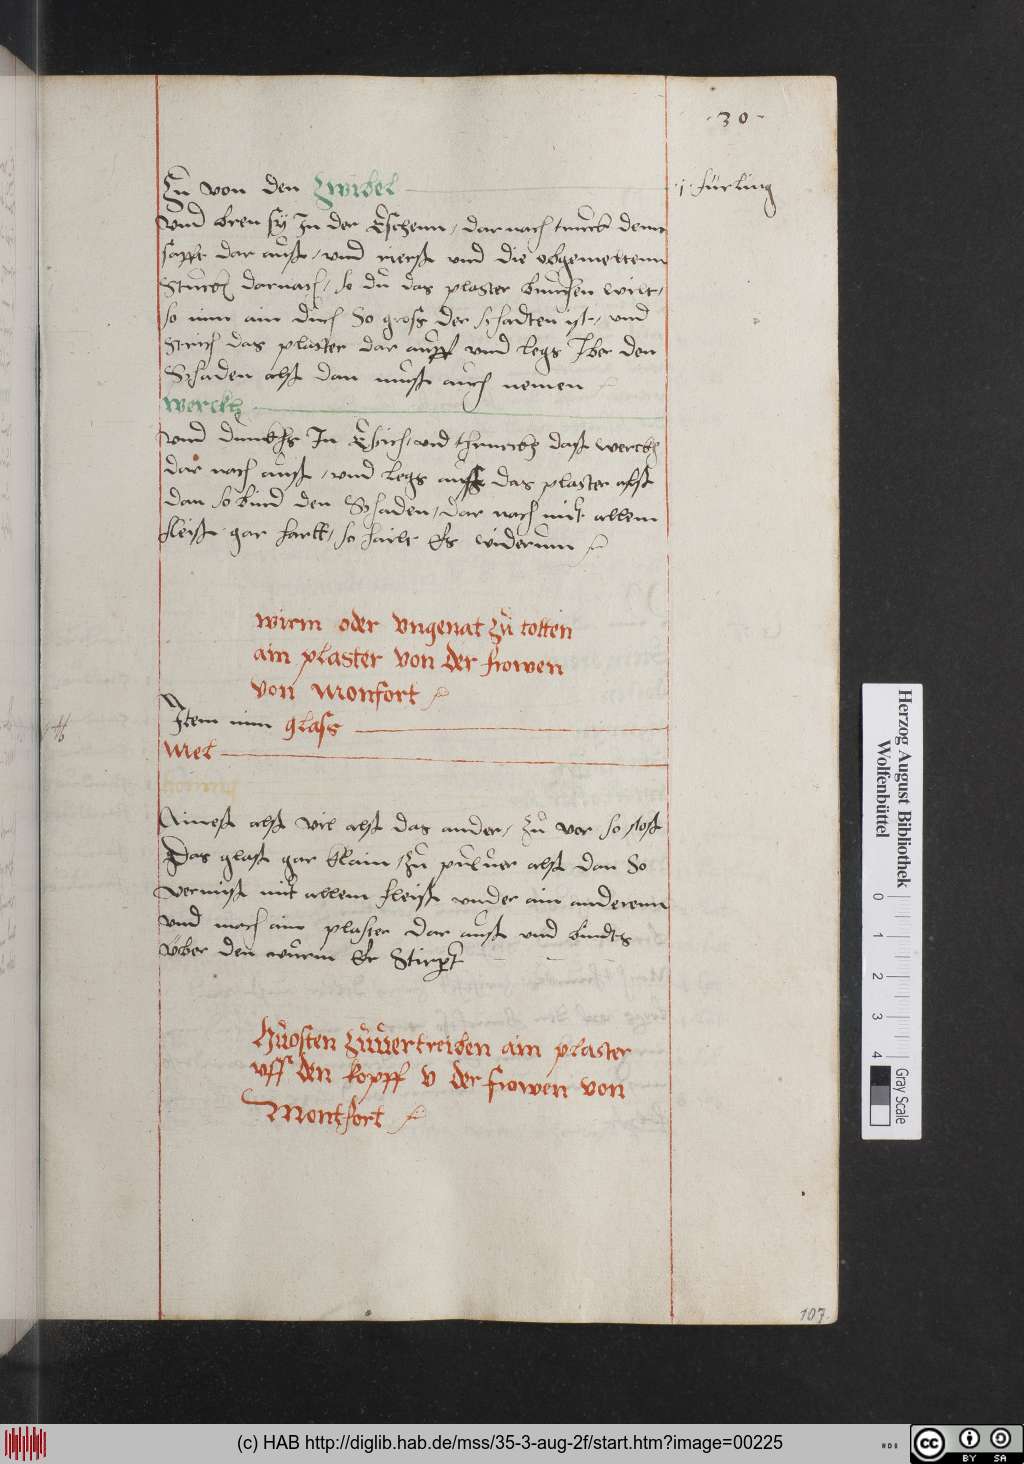 ·30·
Zů von den Zwibel
·j· fürling
vnd bren sÿ In der Eschenn / dar nach truck denn
safft dar auß / vnd vierß vnd die obgemeltenn
Stuckh darnach / so du das plaster bruchen wilt /
so nim ain duch So gros der schadten ist / vnd
Strich das plaster dar auff vnd legs Iber den
Schaden alß dan muß auch nemen
werckh
vnd dunckhs In Esich / vnd thruckh daß werckh
dar nach auß / vnd legs auff das plaster alß
dan so bind den Schaden / dar nach mit allem
fleiß gar hartt / so hailt Es widerum
wirm oder vngenat zů totten
ain plaster von der frowen
von Monfort
Item nim glass
Mel
Aineß alß vil alß das ander / zů vor so stoß
Das glaß gar klain / zů puluer alß dan So
vermiß mit allem fleiß vnder ain anderenn
vnd mach ain plaster dar auß vnd bindts
vber den wurm Er Stirpt
Hůosten zůuertreiben ain plaster
vff den kopff v der frowen von
Montfort
107.
Herzog August Bibliothek
Wolfenbüttel
0 1 2 3 4
Gray Scale
(c) HAB http://diglib.hab.de/mss/35-3-aug-2f/start.htm?image=00225
cc BY SA